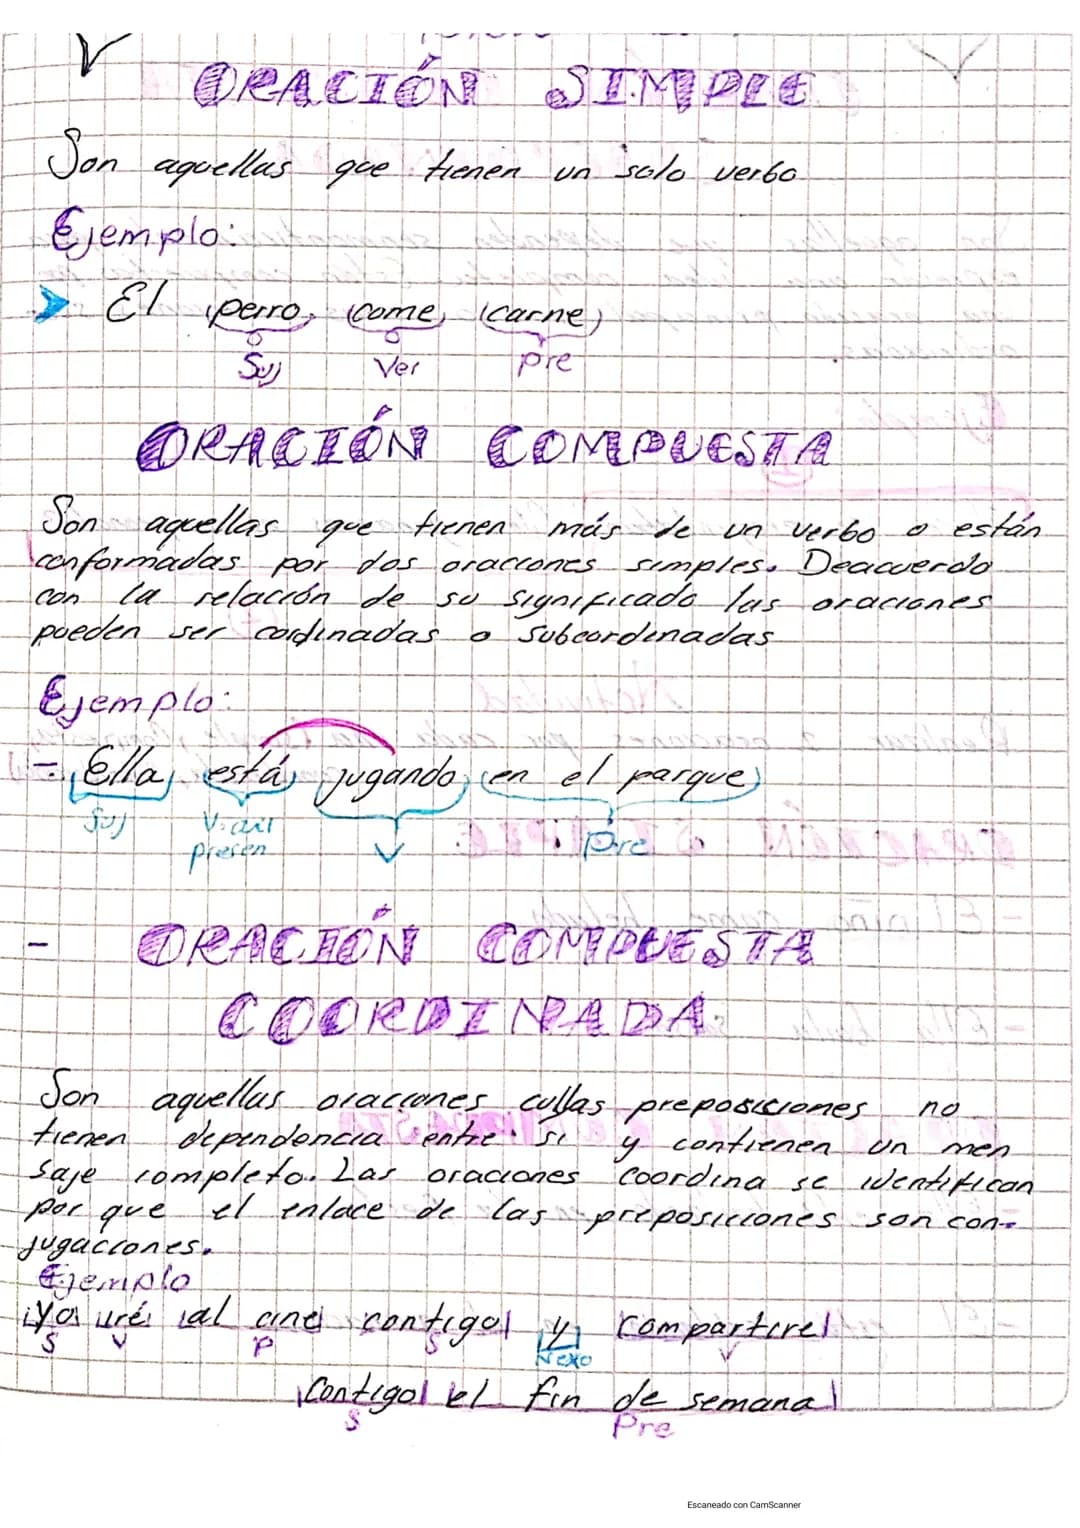 ORACIÓN SIMPLE
Son aquellas que tienen un solo verbo
Ejemplo:
➤ El perro come carne
Suj Ver Pre
ORACIÓN COMPUESTA
Son aquellas que tienen más de un verbo o están
conformadas por dos oraciones simples. Deacuerdo
con la relación de su significado las oraciones
pueden ser cordinadas o subcordinadas
Ejemplo:
- Ella está jugando en el parque
Suj V. axil Pre
presen V
- ORACIÓN COMPUESTA
COORDINADA
Son aquellas oraciones cullas preposiciones no
tienen dependencia entre si y contienen un men
saje completo. Las oraciones coordina se identifican
por que el enlace de las preposiciones son con-
jugaciones.
Ejemplo
Yo iré al cine contigo y compartire
S V P S Nexo V
Contigo el fin de semana
S Pre
Escaneado con CamScanner